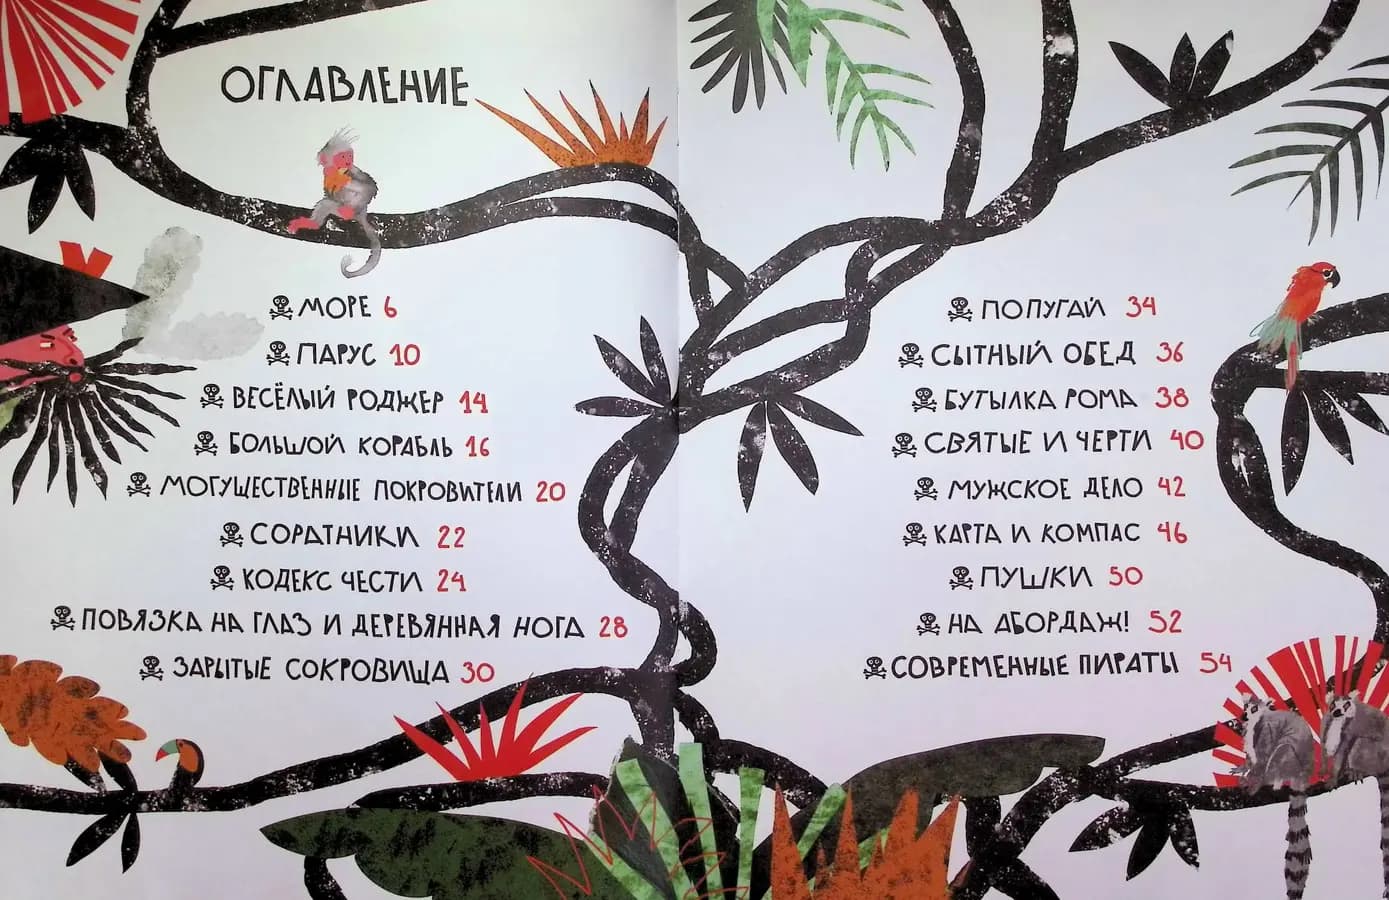 ОГЛАВЛЕНИЕ
МОРЕ 6
ПАРУС 10
ВЕСЁЛЫЙ РОДЖЕР 14
БОЛЬШОЙ КОРАБЛЬ 16
МОГУЩЕСТВЕННЫЕ ПОКРОВИТЕЛИ 20
СОРАТНИКИ 22
КОДЕКС ЧЕСТИ 24
ПОВЯЗКА НА ГЛАЗ И ДЕРЕВЯННАЯ НОГА 28
ЗАРЫТЫЕ СОКРОВИЩА 30
ПОПУГАЙ 34
СЫТНЫЙ ОБЕД 36
БУТЫЛКА РОМА 38
СВЯТЫЕ И ЧЕРТИ 40
МУЖСКОЕ ДЕЛО 42
КАРТА И КОМПАС 46
ПУШКИ 50
НА АБОРДАЖ! 52
СОВРЕМЕННЫЕ ПИРАТЫ 54